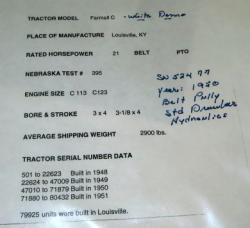 TRACTOR MODEL Farmall C - White Demo
PLACE OF MANUFACTURE Louisville, KY
RATED HORSEPOWER 21 BELT PTO
NEBRASKA TEST # 395
SN 52477
ENGINE SIZE C 113 C123
year: 1950
Belt Pully
BORE & STROKE 3 x 4 3-1/8 x 4
Std Drawbar
Hydraulics
AVERAGE SHIPPING WEIGHT 2900 lbs.
TRACTOR SERIAL NUMBER DATA
501 to 22623 Built in 1948
22624 to 47009 Built in 1949
47010 to 71879 Built in 1950
71880 to 80432 Built in 1951
79925 units were built in Louisville.